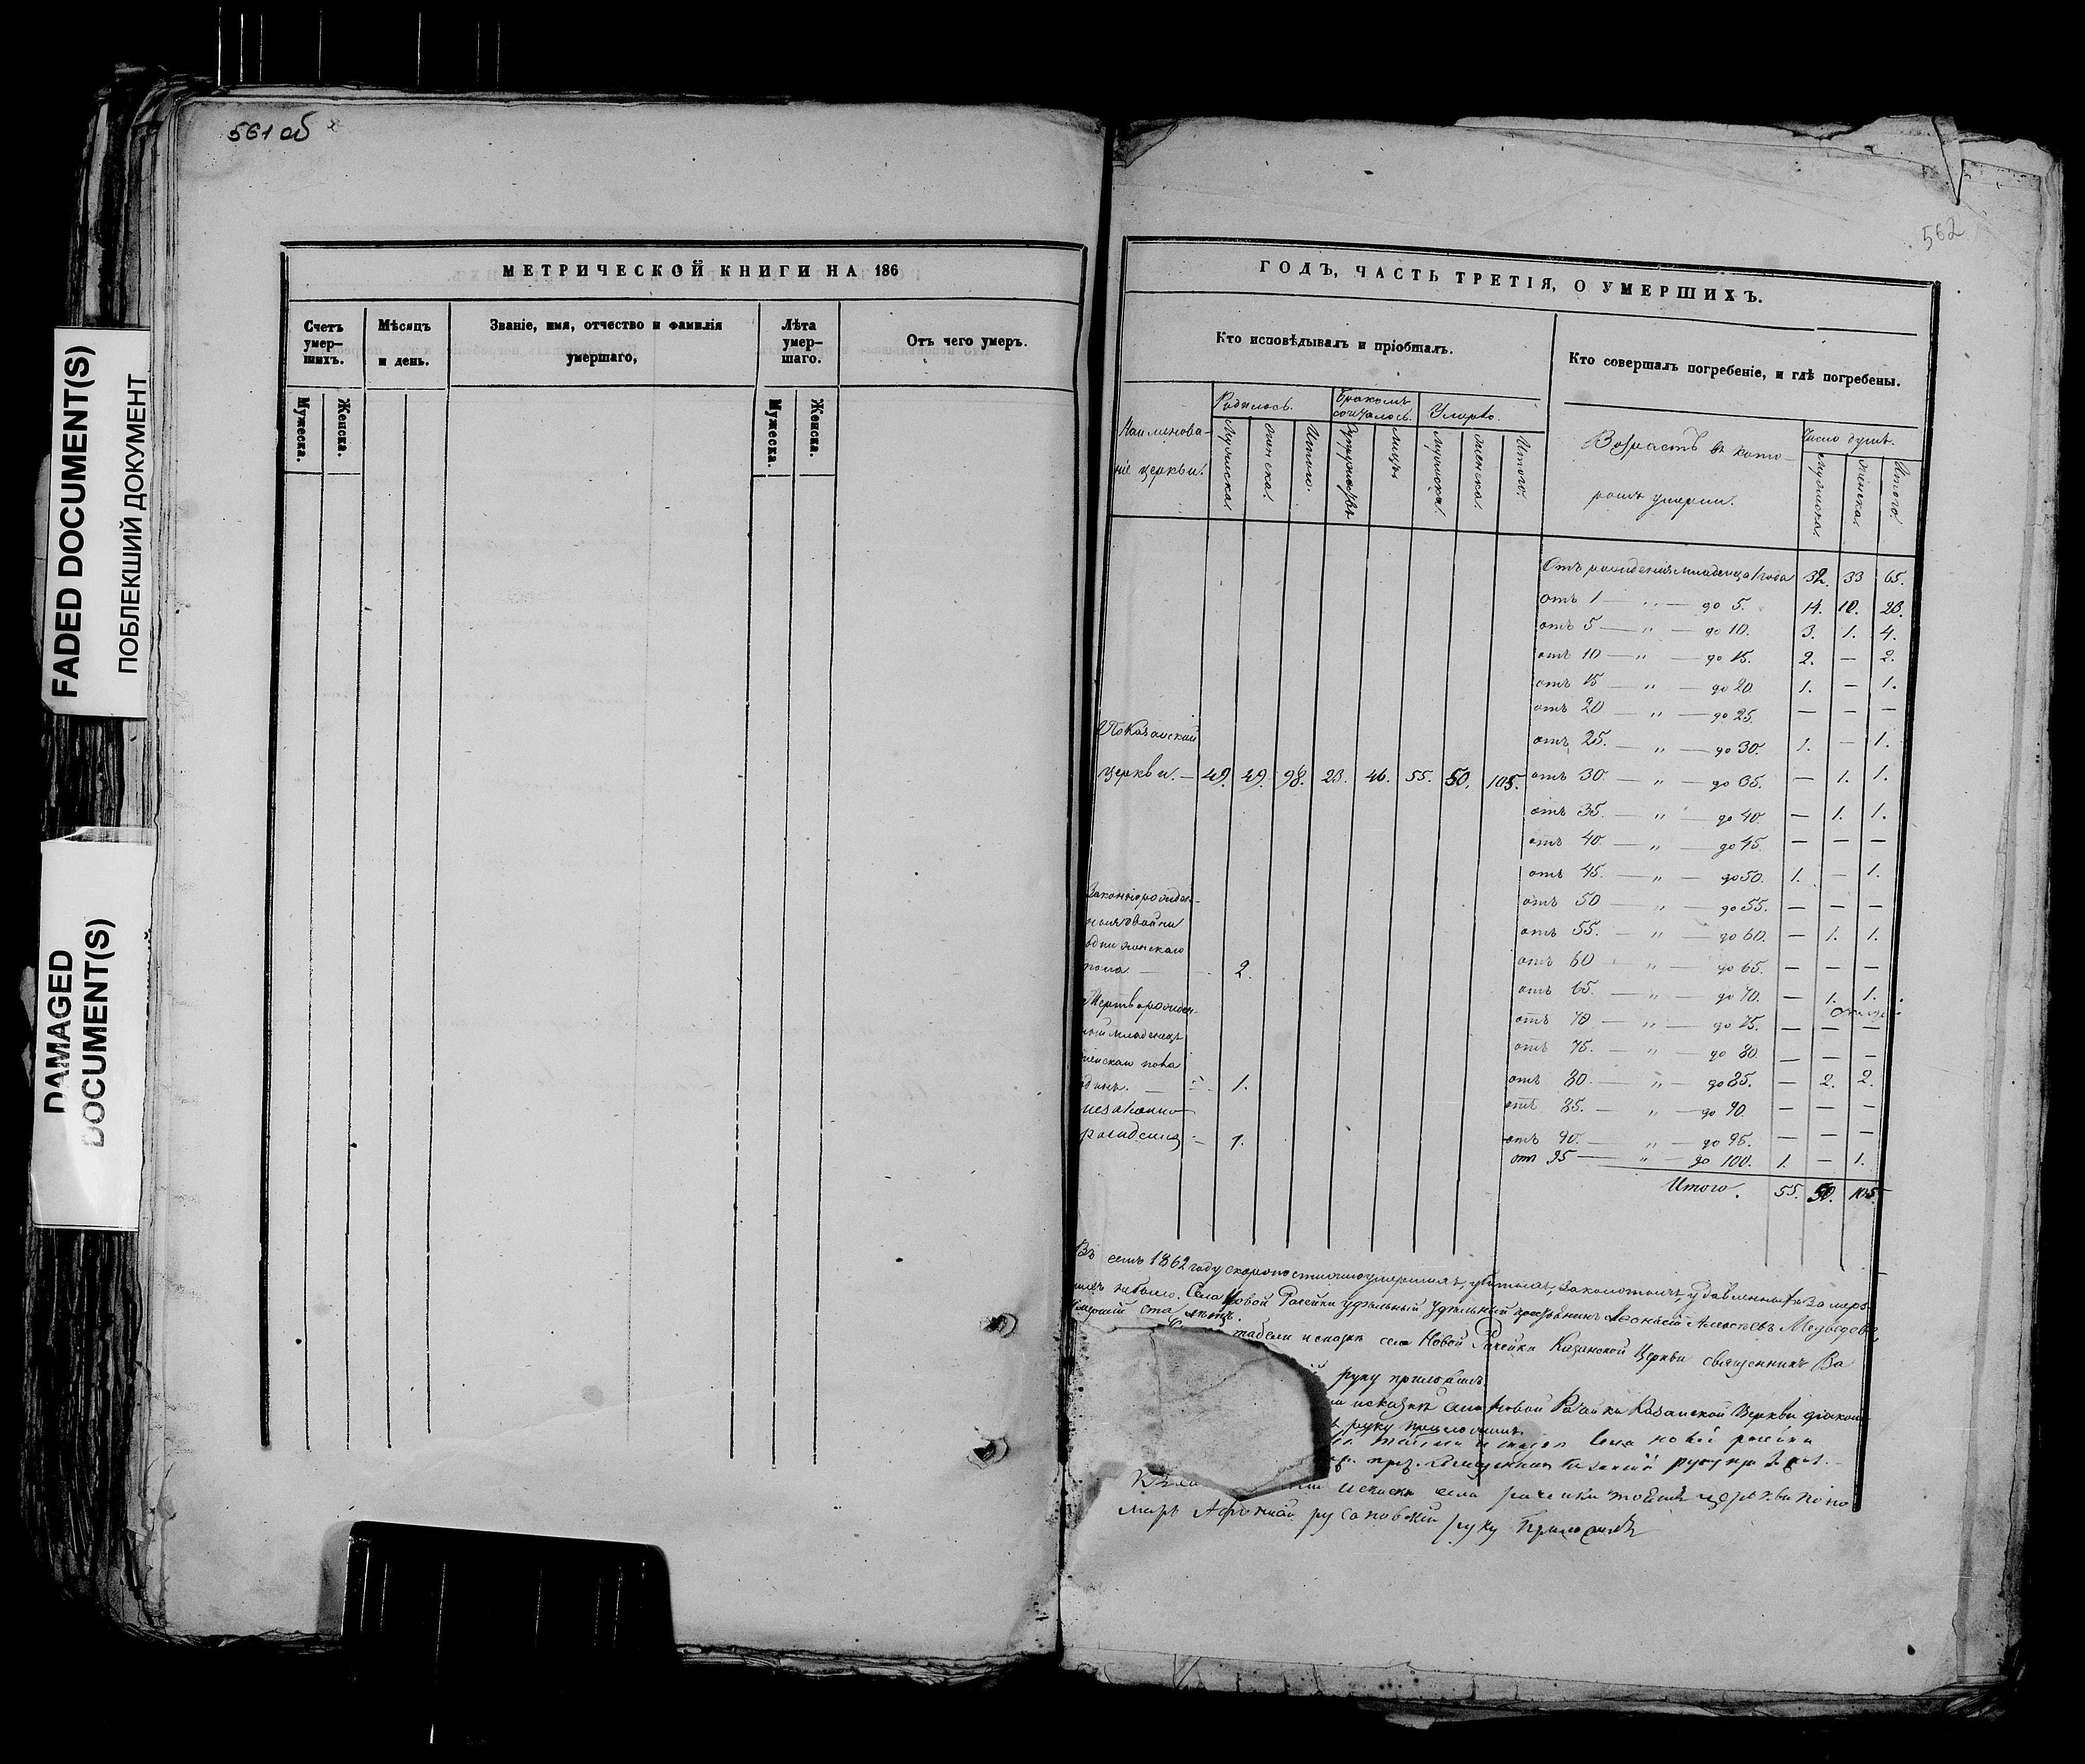 561 об
FADED DOCUMENT(S)
ПОБЛЕКШИЙ ДОКУМЕНТ
DAMAGED
DOCUMENT(S)
МЕТРИЧЕСКОЙ КНИГИ НА 186
Счетъ умер-шихъ.
Мѣсяцъ и день.
Званіе, имя, отчество и фамилія умершаго,
Лѣта умер-шаго.
Отъ чего умеръ.
Мужеска.
Женска.
Мужеска.
Женска.
562
ГОДЪ, ЧАСТЬ ТРЕТІЯ, О УМЕРШИХЪ.
Кто исповѣдывалъ и пріобщалъ.
Кто совершалъ погребеніе, и гдѣ погребены.
Наименова-
ніе церкви.
Родилось.
Бракомъ
сочталось.
Умерло.
Мужеска.
Женска.
Итого.
Супружествъ
Лицъ
Мужеска.
Женска.
Итого.
Возрастъ въ кото-
ромъ умерли.
Число душъ.
Мужеска.
Женска.
Итого.
Отъ рожденія младенца 1 года 32. 33 65.
отъ 1 — " — до 5. 14. 10.
отъ 5 — " — до 10. 3. 1. 4.
отъ 10 — " — до 15. 2. — 2.
отъ 15 — " — до 20 1. — 1.
отъ 20 — " — до 25. — — —
отъ 25. — " — до 30. 1. — 1.
отъ 30. — " — до 35. — 1. 1.
отъ 35. — " — до 40. — 1. 1.
отъ 40. — " — до 45. — — —
отъ 45. — " — до 50. 1. — 1.
отъ 50 — " — до 55. — — —
отъ 55. — " — до 60. — 1. 1.
отъ 60 — " — до 65. — — —
отъ 65. — " — до 70. — 1. 1.
отъ 70 — " — до 75. — — —
отъ 75. — " — до 80. — — —
отъ 80. — " — до 85. — 2. 2.
отъ 85. — " — до 90. — — —
отъ 90. — " — до 95. — — —
отъ 95 — " — до 100. 1. — 1.
Итого. 55. 50. 105.
По Казанской
церкви. — 49. 49. 98. 23. 46. 55. 50. 105.
одни женскаго
пола — 2.
Мертворожден-
ный младенецъ
женскаго пола
одинъ. — 1.
незаконно
рожденнa — 1.
Въ семъ 1862 году скоропостижноумершихъ, убитыхъ, удавленныхъ замерз
шихъ небыло. Села Новой Рачейки удѣльный Алексѣевъ Медведевъ
умершій ста лѣтъ.
табели и сказкѣ села Новой Рачейки Казанской Церкви священникъ Ва
руку приложилъ.
сказкѣ села Новой Рачейки Казанской Церкви діакон
руку приложилъ.
села новой рачейки
руку
села рачейки тойже церкви поно
марь русановской руку приложилъ